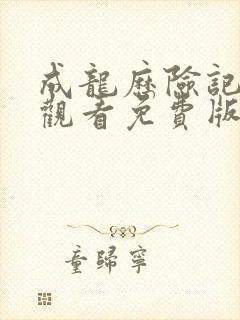 成龍歷險記
觀看免費版
童歸寧